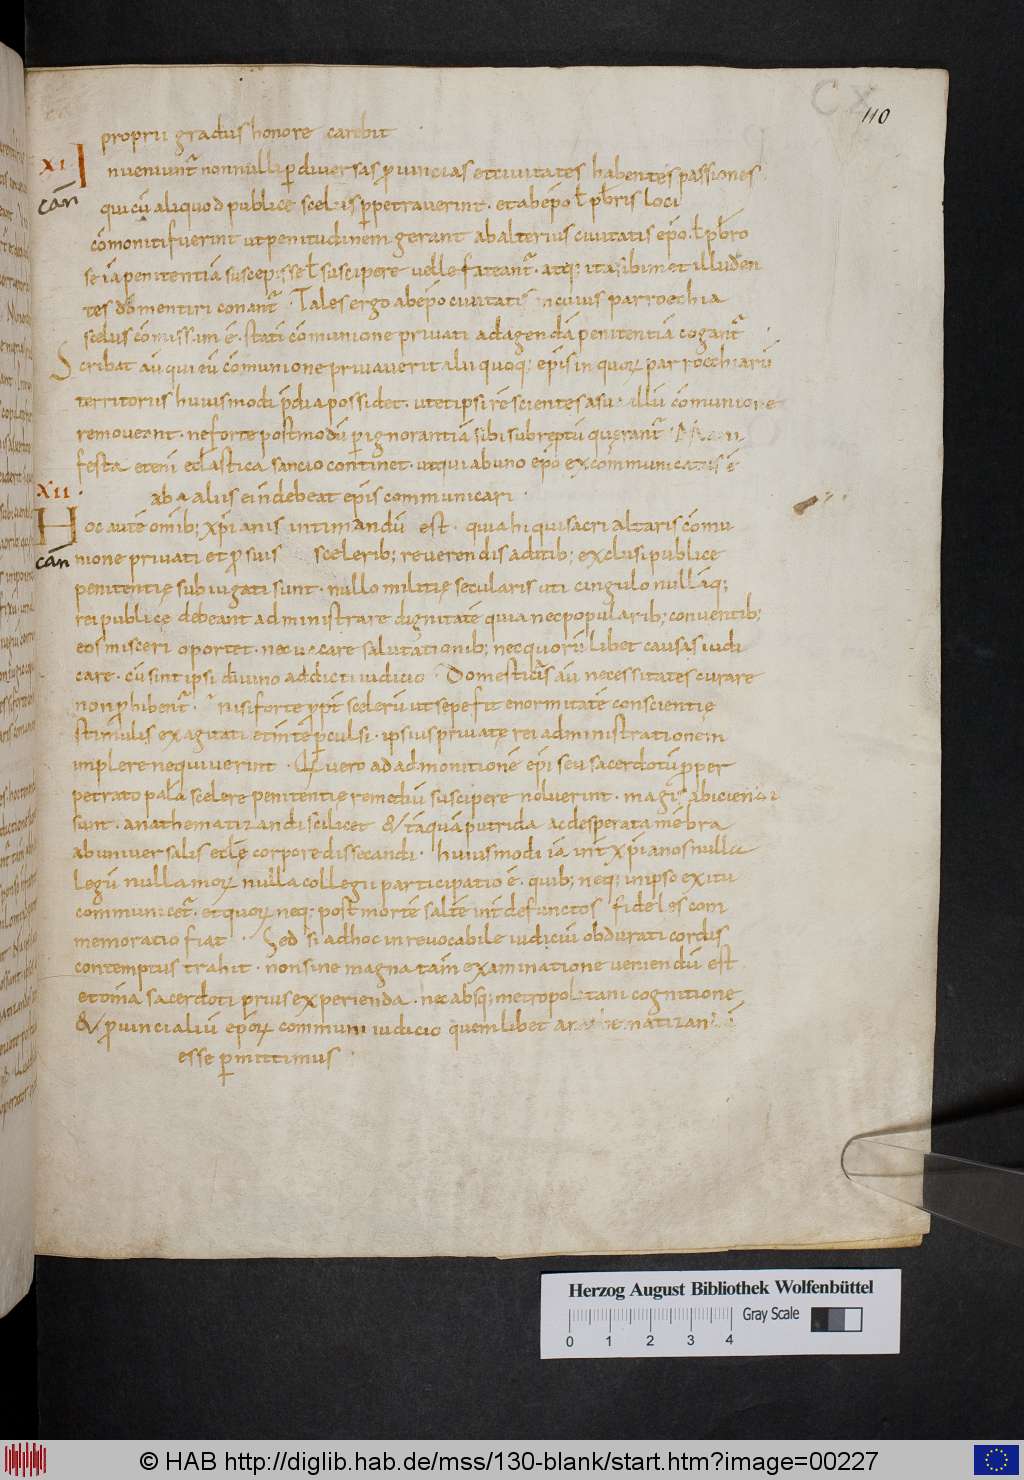 CX
110
proprii gradus honore carebit
XI. Inueniunt᷑ nonnulli ꝑ diuersas ꝓuincias et ciuitates habentes passiones
can
qui cū aliquod publice scelus ꝑpetrauerint. et ab ep̄o ł pb̄ris loci
cōmoniti fuerint ut penitudinem gerant ab alterius ciuitatis ep̄o. ł pb̄ro
se iā penitentiā suscepisse ł suscipere uelle fateant᷑. atq; ita sibimet illuden
tes dō mentiri conant᷑. Tales ergo ab ep̄o ciuitatis in cuius parroechia
scelus cōmissum ē. stati cōmunione priuati ad agendā penitentiā cogant᷑
Scribat aū qui eū cōmunione priuauerit alii quoq; ep̄is in quoꝝ parrochiarū
territoriis huiusmodi p̄dia possidet. ut et ipsi rescientes a sua illū cōmunione
remoueant. ne forte postmodū ꝑ ignorantiā sibi subreptū querant᷑. Mani
festa etenī ecl̄astica sanctio continet. ut qui ab uno ep̄o excommunicatus ē
ab aliis ei indebeat ep̄is communicari.
XII.
Hoc autē omīb; xp̄ianis intimandū est. quia hi qui sacri altaris cōmu
can
nione priuati et ꝓ suis sceleribꝫ reuerendis aditib; exclusi publice
penitentię subiugati sunt. nullo militię secularis uti cingulo nullāq;
rei publicę debeant administrare dignitatē quia nec popularib; conuentib;
eos misceri oportet. nec uacare salutationib; nec quorū libet causas iudi
care. cū sint ipsi diuino addicti iudicio. Domesticas aū necessitates curare
non ꝓhibent᷑. nisi forte ꝓpt̄ scelerū ut sepe fit enormitatē conscientię
stimulis exagitati et intē ꝑculsi. ipsius priuatę rei administrationem
implere nequiuerint. Qui uero ad admonitionē ep̄i seu sacerdotū ꝓ ꝑper
petrato palā scelere penitentię remediū suscipere noluerint. magis abiciendi
sunt. anathematizandi scilicet & tāquā putrida ac desperata mēbra
ab uniuersalis ecl̄ę corpore dissecandi. huiusmodi iā int̄ xp̄ianos nulla
legū nulla moꝝ nulla collegii participatio ē. quib; neq; in ipso exitu
communicet᷑. et quoꝝ neq; post mortē saltē int̄ defunctos fideles com
memoratio fiat. Sed si ad hoc inreuocabile iudiciū obdurati cordis
contemptus trahit. non sine magna tam̄ examinatione ueniendū est
et om̄ia sacerdoti prius experienda. nec absq; metropolitani cognitione
& ꝓuincialiū ep̄oꝝ communi iudicio quemlibet anathematizandū
esse ꝑmittimus.
Herzog August Bibliothek Wolfenbüttel
0 1 2 3 4 Gray Scale
© HAB http://diglib.hab.de/mss/130-blank/start.htm?image=00227